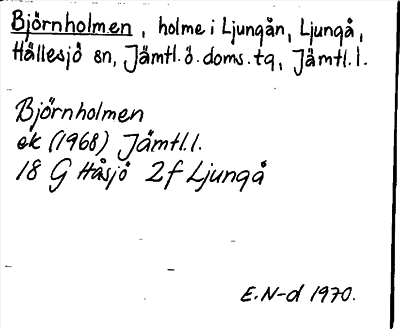 Björnholmen, holme i Ljungån, Ljungå,
Hällesjö sn, Jämtl.ö.doms.tg, Jämtl.l.
Björnholmen
ek (1968) Jämtl.l.
18 G Håsjö 2f Ljungå
E.N-d 1970.